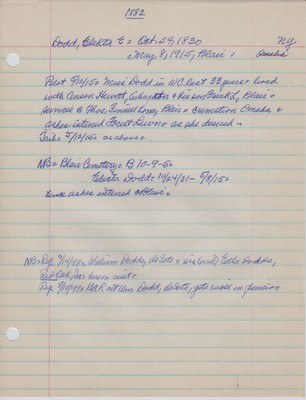 1882
Dodd, Electa E = Oct. 29, 1830 NY
= May 8, 1915, Blair = Omaha
Pilot 5/12/15= Miss Dodd in WC last 33 years = lived
with Anson Hewett, Arlington & his son Frank L, Blair =
services @ Thos. Finnell home, Blair = cremation Omaha &
ashes interred Forest Lawn = as she desired =
Trib= 5/13/15= as above =
NB= Blair Cemetery = B 10-9-5=
Electa Dodd= 10/24/31- 5/8/15=
hence ashes interred @ Blair =
NB= Rep. 7/14/98= William Dodds, deSoto = sis (and) Edla Dodds,
Red Oak, Ia = here on visit =
Rep. 9/14/98= GAR William Dodd, deSoto, gets raise in pension